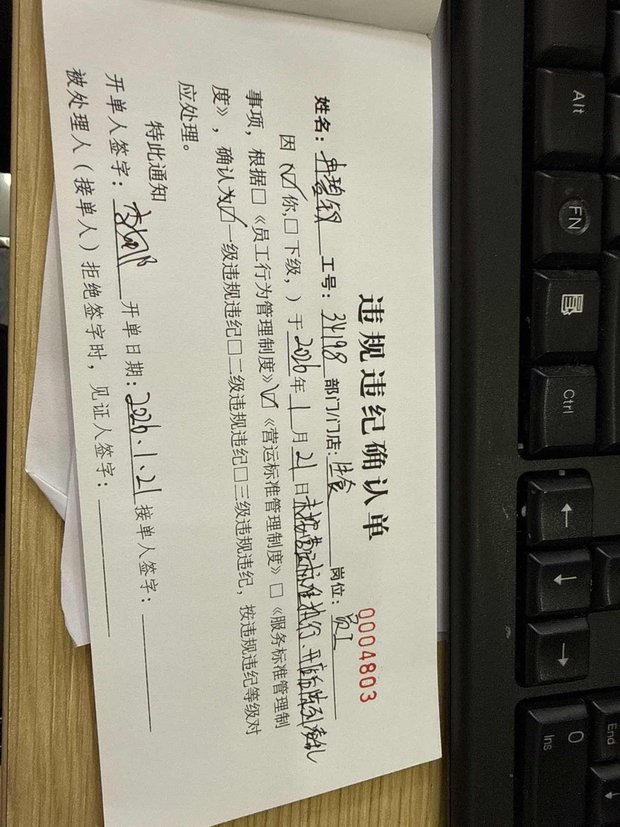 违规违纪确认单
0004803
姓名： 工号：34198 部门/门店： 岗位：员工
因（☑你，□下级，）于2026年1月21日未按营运标准执行、开店陈列凌乱
事项，根据□《员工行为管理制度》☑《营运标准管理制度》□《服务标准管理制
度》，确认为☑一级违规违纪□二级违规违纪□三级违规违纪，按违规违纪等级对
应处理。
特此通知
开单人签字： 开单日期：2026.1.21 接单人签字：
被处理人（接单人）拒绝签字时，见证人签字：
Alt
FN
Ctrl
←
↓
→
End
0
Ins